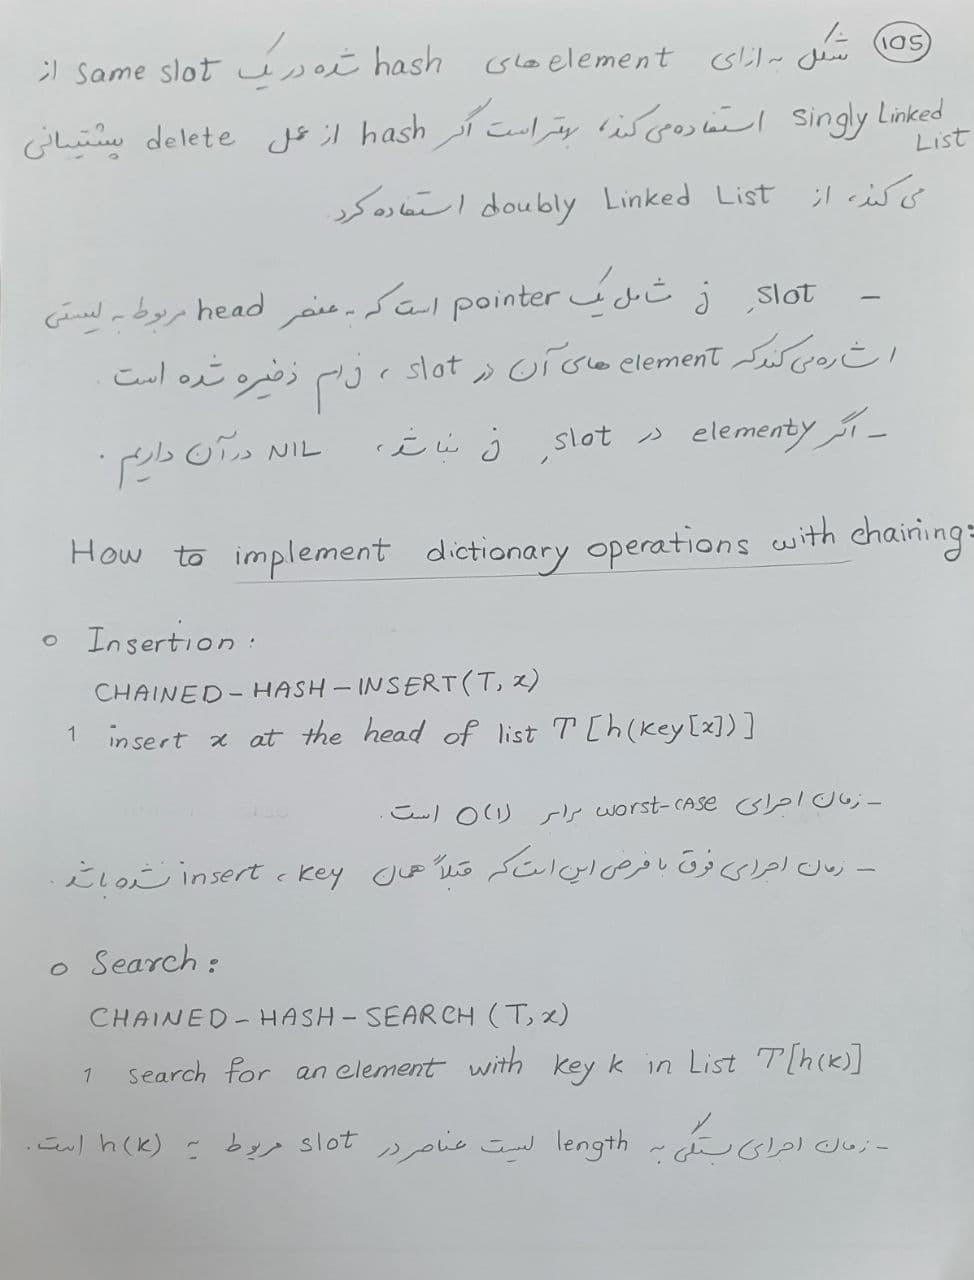 105
شکل به ازای element های hash شده در یک same slot از
singly Linked List استفاده می‌کند، بهتر است اگر hash از عمل delete پشتیبانی
می‌کند، از doubly Linked List استفاده کرد.
- slot، j شامل یک pointer است که به عنصر head مربوط به لیستی
اشاره می‌کند که element های آن در slot، jام ذخیره شده است.
- اگر elementy در slot، j نباشد، NIL در آن داریم.
How to implement dictionary operations with chaining:
o Insertion:
CHAINED-HASH-INSERT(T, x)
1 insert x at the head of list T[h(key[x])]
- زمان اجرای worst-case برابر O(1) است.
- زمان اجرای فوق با فرض این است که قبلاً همان key، insert نشده باشد.
o Search:
CHAINED-HASH-SEARCH (T, x)
1 search for an element with key k in List T[h(k)]
- زمان اجرای بستگی به length لیست عناصر در slot مربوط به h(k) است.